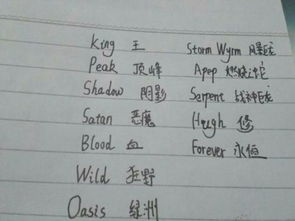 King 王
Peak 顶峰
Shadow 阴影
Satan 恶魔
Blood 血
Wild 狂野
Oasis 绿洲
Storm Wyrm 风暴龙
Apep 燃烧蛇
Serpent 战神龙
Hugh 修
Forever 永恒